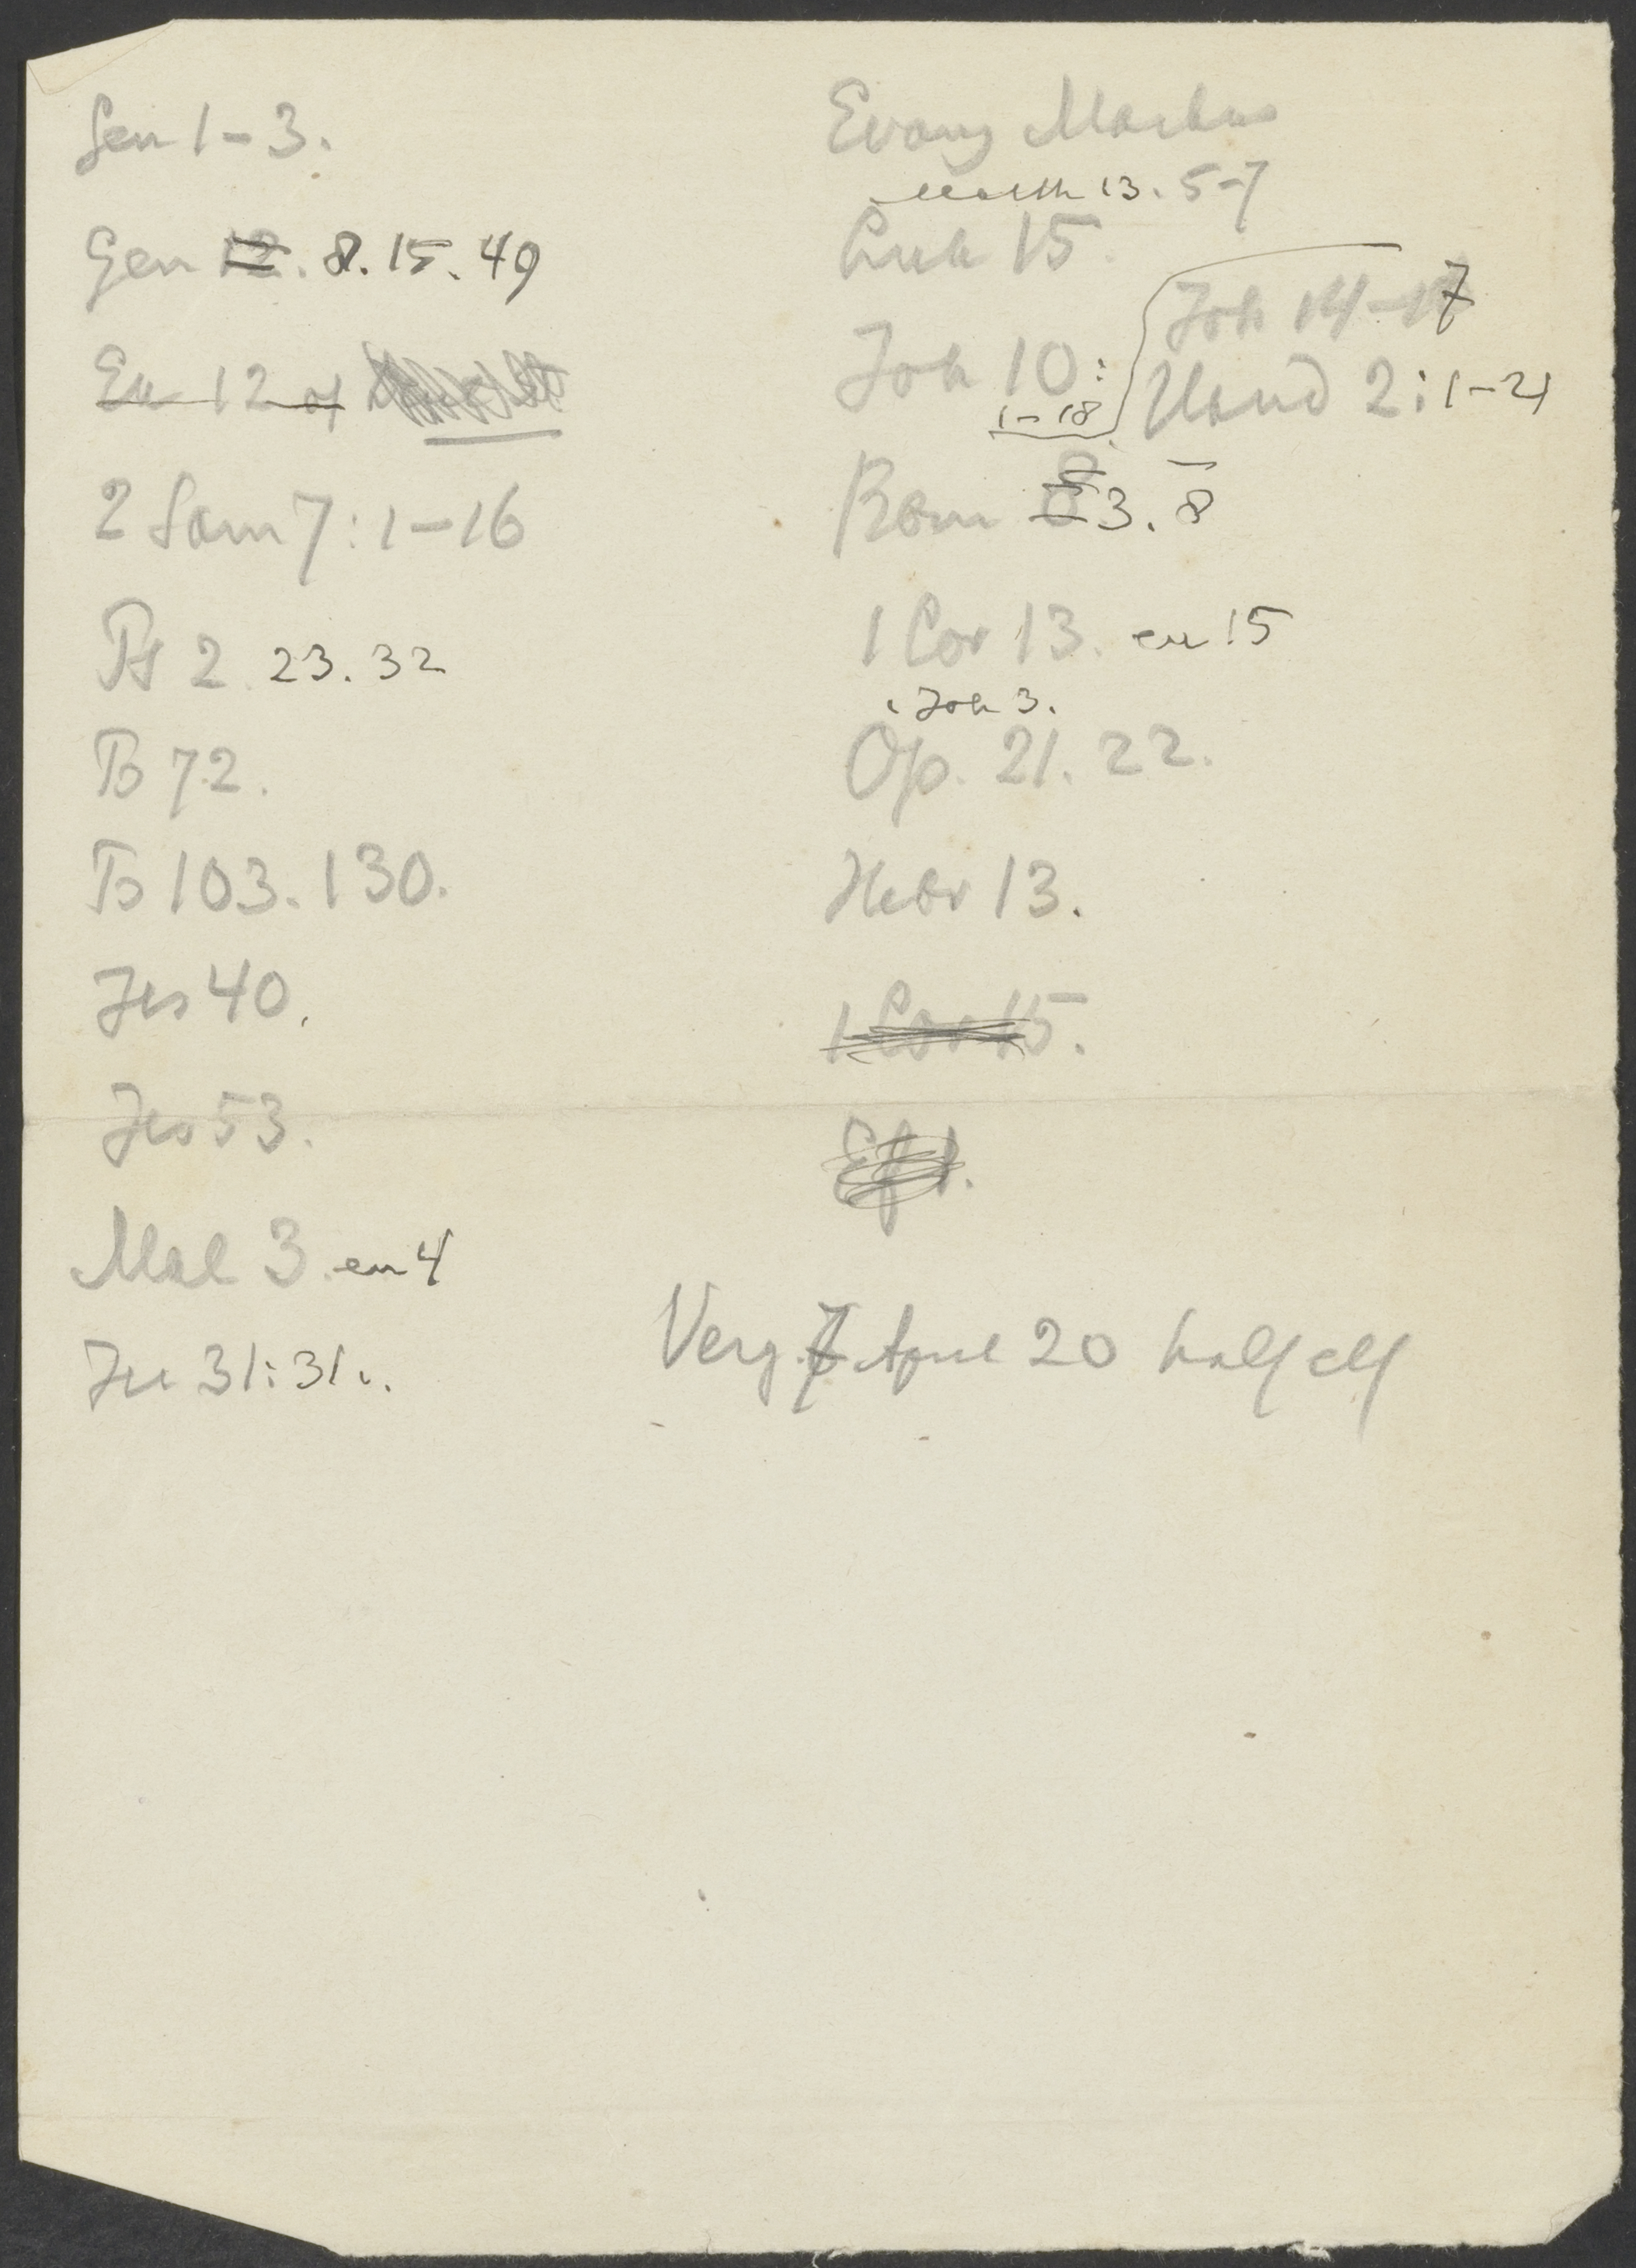 Gen 1-3.
Gen 12. 8. 15. 49
Ex 12 of
2 Sam 7: 1-16
Ps 2. 23. 32
Ps 72.
Ps 103. 130.
Jes 40.
Jes 53.
Mal 3. en 4
Jer 31: 31v.
Evang Markus
Matth 13. 5-7
Luk 15.
Joh 10:
1-18
Joh 14-17
Hand 2: 1-21
Rom 8 3. 8
1 Cor 13. en 15
1 Joh 3.
Op. 21. 22.
Hebr 13.
1 Cor 15.
Ef 1.
Verg. 7 April 20 half elf